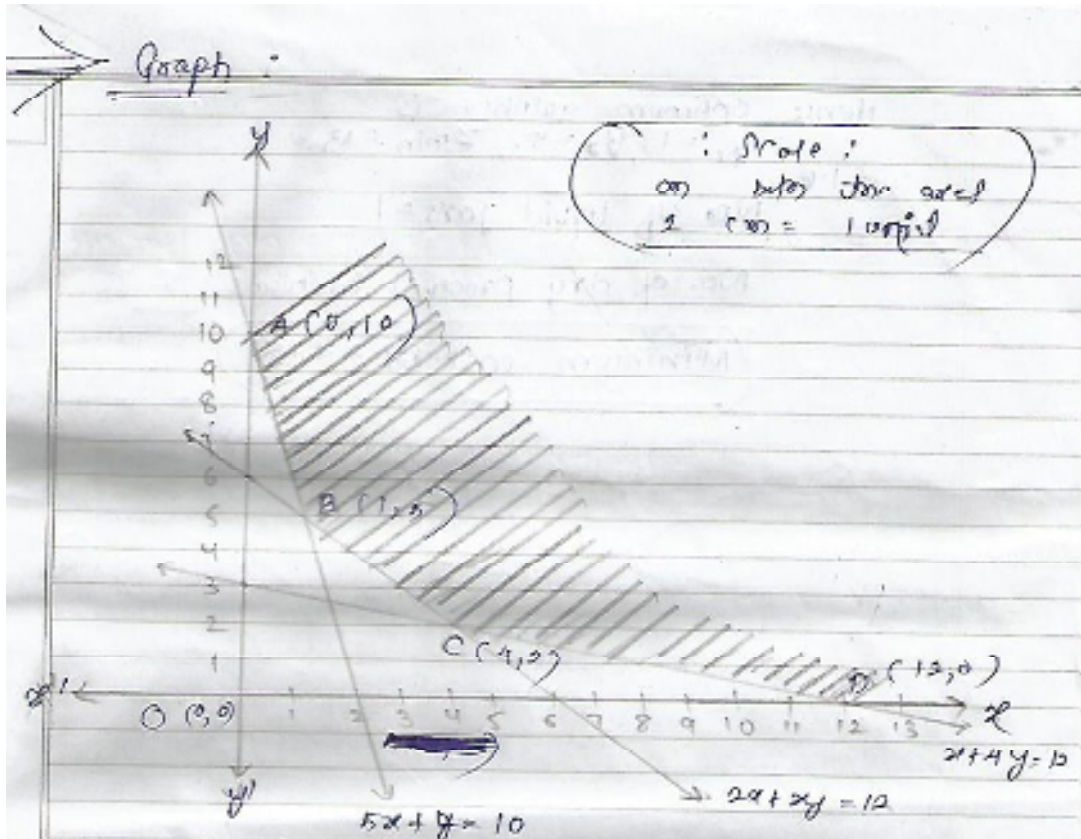 Graph :
y
: Scale :
on both the axes
1 cm = 1 unit
12
11
10
9
8
7
6
5
4
3
2
1
A (0,10)
B (1,5)
C (4,2)
D (12,0)
x'
O (0,0)
1 2 3 4 5 6 7 8 9 10 11 12 13
x
y'
x+4y=12
2x+2y=12
5x+y=10